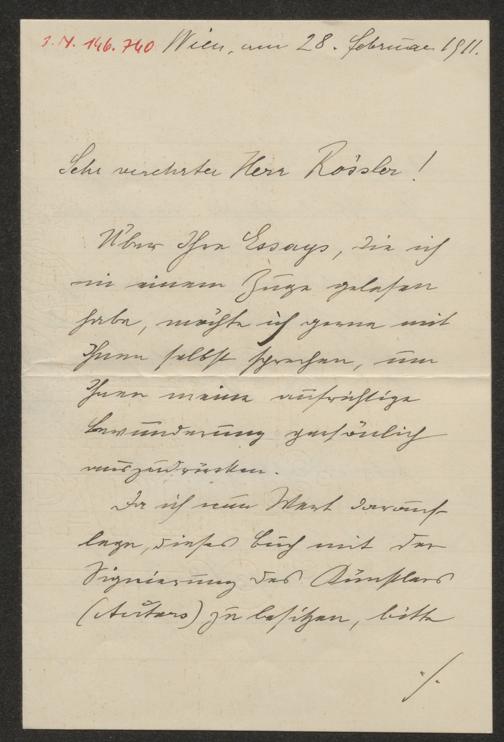 I.N. 146.740 Wien, am 28. Februar 1911.
Sehr verehrter Herr Rössler!
Über Ihre Essays, die ich
in einem Zuge gelesen
habe, möchte ich gerne mit
Ihnen selbst sprechen, um
Ihnen meine aufrichtige
Bewunderung persönlich
auszudrücken.
Da ich nun Wert darauf
lege, dieses Buch mit der
Signierung des Künstlers
(Autors) zu besitzen, bitte
./.